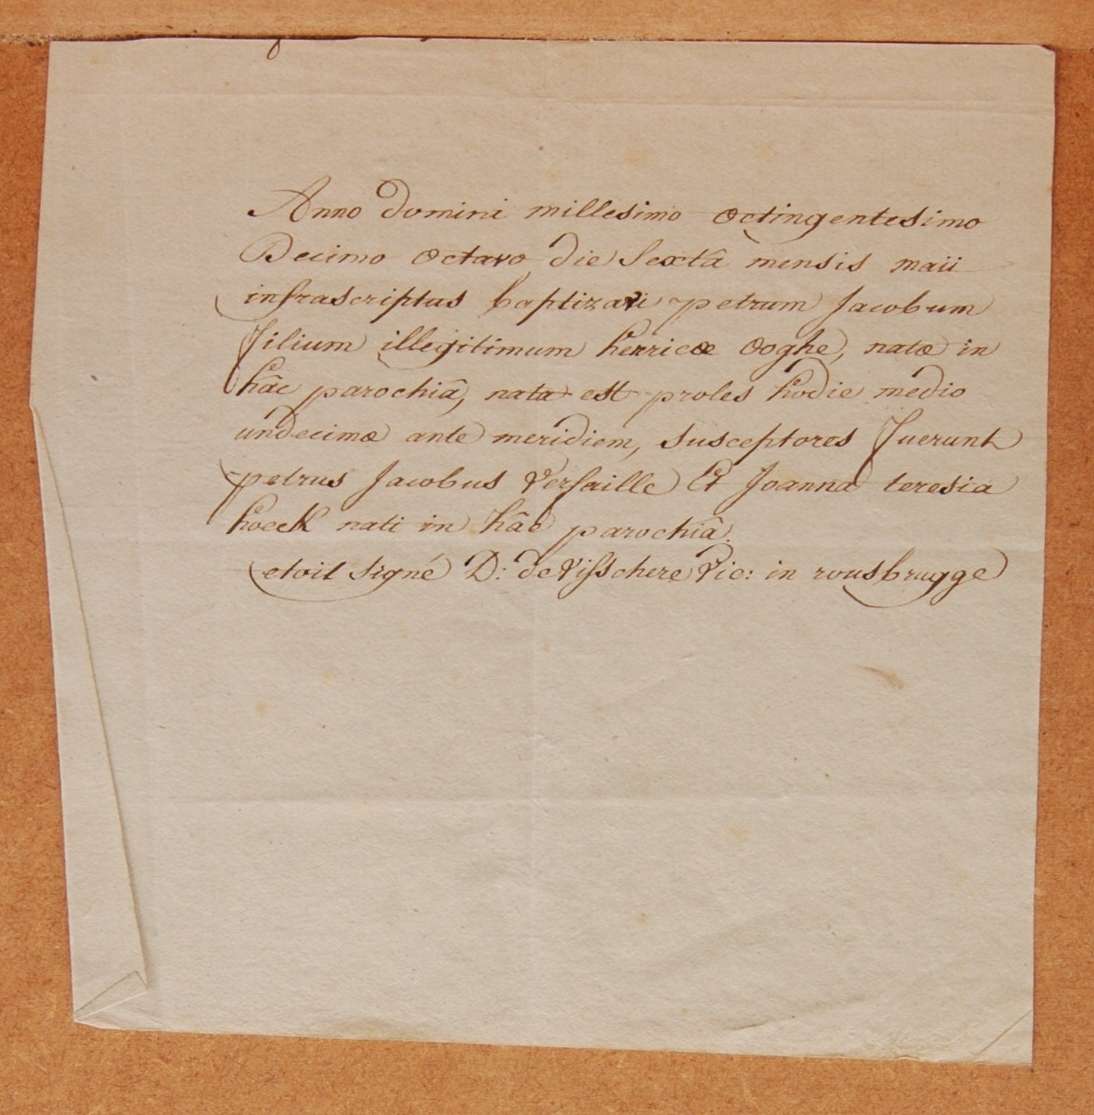 Anno domini millesimo octingentesimo
Decimo octavo die Sextâ mensis maii
infrascriptus baptizavi petrum Jacobum
filium illegitimum henricæ Ooghe, natæ in
hâc parochiâ, nata est proles hodie medio
undecimæ ante meridiem, Susceptores fuerunt
petrus Jacobus Versaille Et Joanna teresia
hoeck nati in hâc parochiâ.
etoit Signé D: de Visschere Vic: in rousbrugge